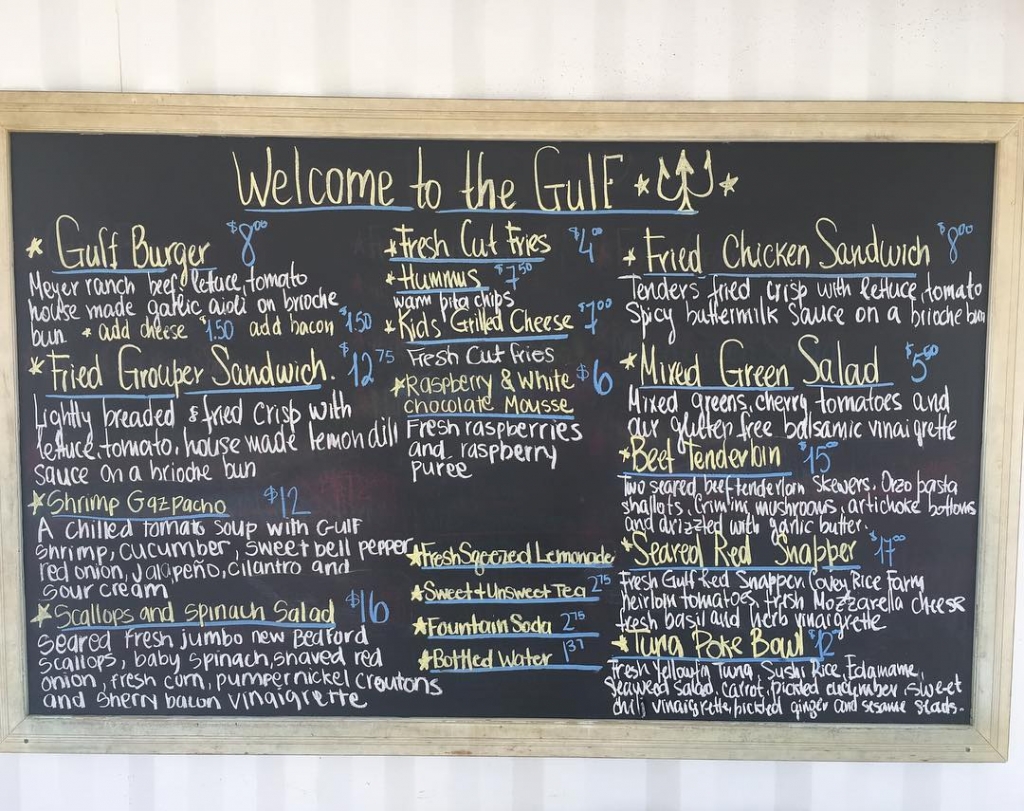 Welcome to the Gulf
Gulf Burger $8.00
Meyer ranch beef, lettuce, tomato
house made garlic aioli on brioche
bun * add cheese $1.50 add bacon $1.50
Fried Grouper Sandwich. $12.75
Lightly breaded & fried crisp with
lettuce, tomato, house made lemon dill
sauce on a brioche bun
Shrimp Gazpacho $12
A chilled tomato soup with Gulf
shrimp, cucumber, sweet bell pepper
red onion, jalapeño, cilantro and
sour cream
Scallops and Spinach Salad $16
Seared fresh jumbo new Bedford
scallops, baby spinach, shaved red
onion, fresh corn, pumpernickel croutons
and sherry bacon vinaigrette
Fresh Cut Fries $4.00
Hummus $7.50
warm pita chips
Kids Grilled Cheese $7.00
Fresh Cut fries
Raspberry & White $6
chocolate Mousse
Fresh raspberries
and raspberry
puree
Fresh Sqeezed Lemonade
Sweet + Unsweet Tea 2.75
Fountain Soda 2.75
Bottled Water 1.37
Fried Chicken Sandwich $8.00
Tenders fried crisp with lettuce, tomato
Spicy buttermilk sauce on a brioche bun
Mixed Green Salad $5.50
Mixed greens, cherry tomatoes and
our gluten free balsamic vinaigrette
Beef Tenderloin $15.00
Two seared beef tenderloin skewers. Orzo pasta
shallots, Crimini mushrooms, artichoke bottoms
and drizzled with garlic butter.
Seared Red Snapper $17.00
Fresh Gulf Red Snapper. Covey Rice Farm
heirlom tomatoes, fresh Mozzarella cheese
fresh basil and herb vinaigrette
Tuna Poke Bowl $12
Fresh Yellowfin Tuna, Sushi Rice, Edamame,
Seaweed salad, carrot, pickled cucumber, sweet
chili vinaigrette, pickled ginger and sesame seeds.